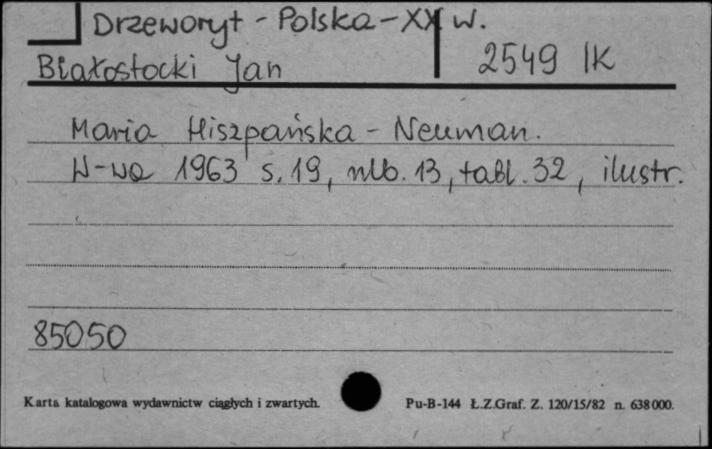 Drzeworyt - Polska - XX w.
Białostocki Jan 2549 IK
Maria Hiszpańska - Neuman.
W-wa 1963 s. 19, nlb. 13, tabl. 32, ilustr.
85050
Karta katalogowa wydawnictw ciągłych i zwartych. Pu-B-144 Ł.Z.Graf. Z. 120/15/82 n. 638 000.